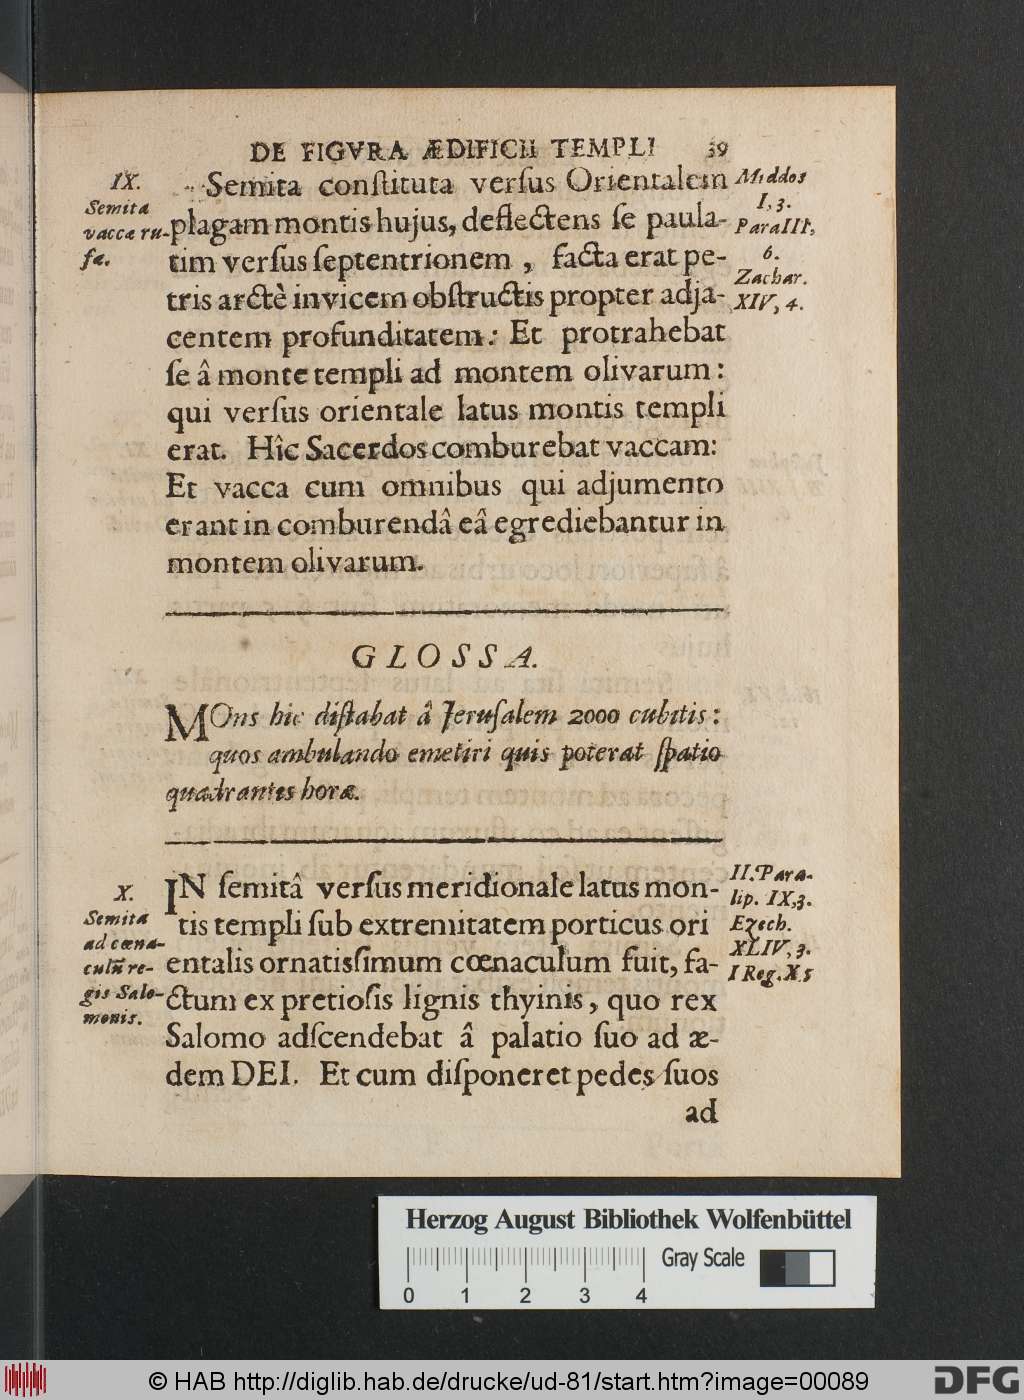 DE FIGVRA ÆDIFICII TEMPLI 39
IX.
Semita
vaccæ ru-
fæ.
Semita conſtituta verſus Orientalem
plagam montis hujus, deflectens ſe paula-
tim verſus ſeptentrionem, facta erat pe-
tris arctè invicem obſtructis propter adja-
centem profunditatem: Et protrahebat
ſe â monte templi ad montem olivarum:
qui verſus orientale latus montis templi
erat. Hîc Sacerdos comburebat vaccam:
Et vacca cum omnibus qui adjumento
erant in comburendâ eâ egrediebantur in
montem olivarum.
Middos
I, 3.
Para III,
6.
Zachar.
XIV, 4.
GLOSSA.
MOns hic diſtabat â Jeruſalem 2000 cubitis:
quos ambulando emetiri quis poterat ſpatio
quadrantis horæ.
X.
Semita
ad cœna-
culũ re-
gis Salo-
monis.
IN ſemitâ verſus meridionale latus mon-
tis templi ſub extremitatem porticus ori
entalis ornatiſſimum cœnaculum fuit, fa-
ctum ex pretioſis lignis thyinis, quo rex
Salomo adſcendebat â palatio ſuo ad æ-
dem DEI. Et cum diſponeret pedes ſuos
ad
II. Para-
lip. IX, 3.
Ezech.
XLIV, 3.
I Reg. X 5
Herzog August Bibliothek Wolfenbüttel
Gray Scale
0 1 2 3 4
© HAB http://diglib.hab.de/drucke/ud-81/start.htm?image=00089
DFG